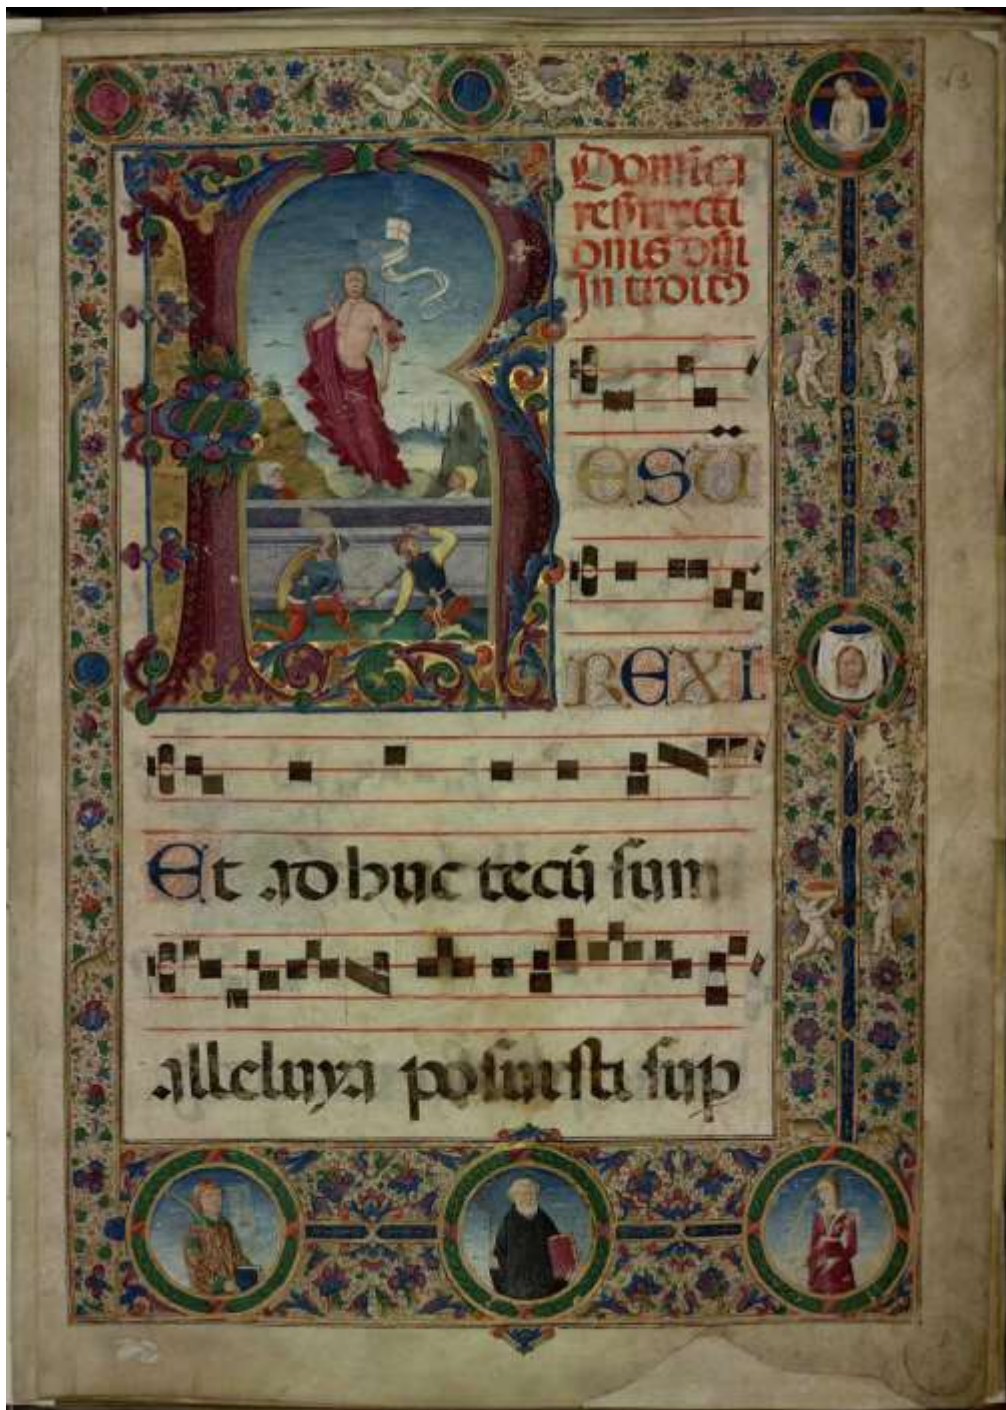 Domīca
resurrecti
onis dñi
Introitꝰ
RESU
REXI
Et adhuc tecū sum
alleluya posuisti sup